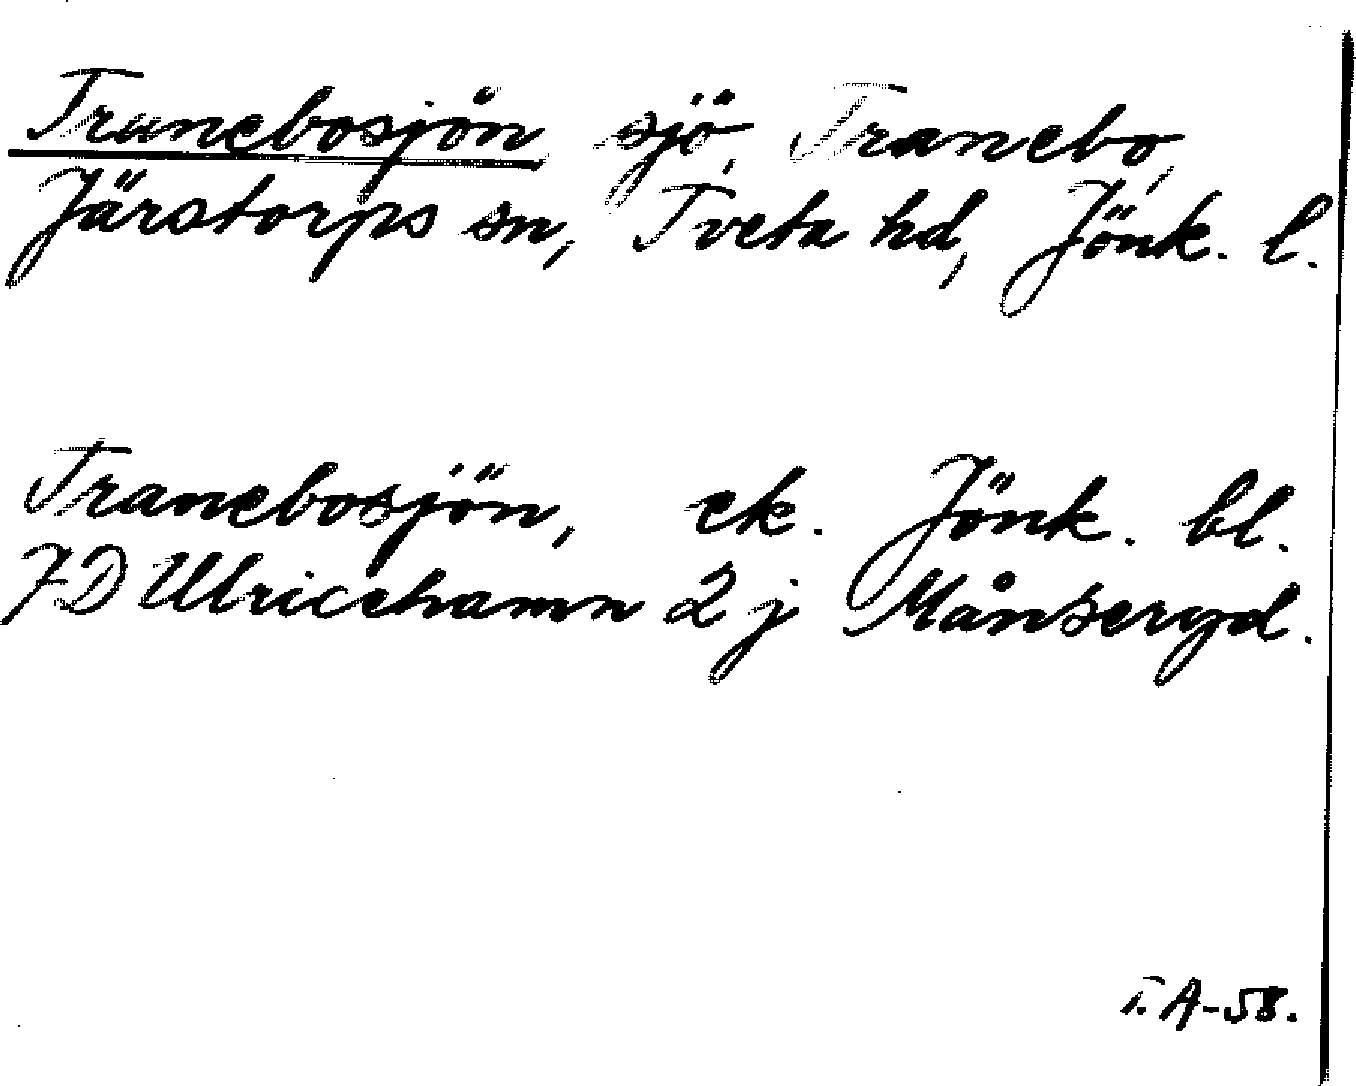 Tranebosjön sjö, Tranebo,
Järstorps sn, Tveta hd, Jönk. l.
Tranebosjön, ek. Jönk. bl.
7D Ulricehamn 2j Månseryd.
T.A-58.